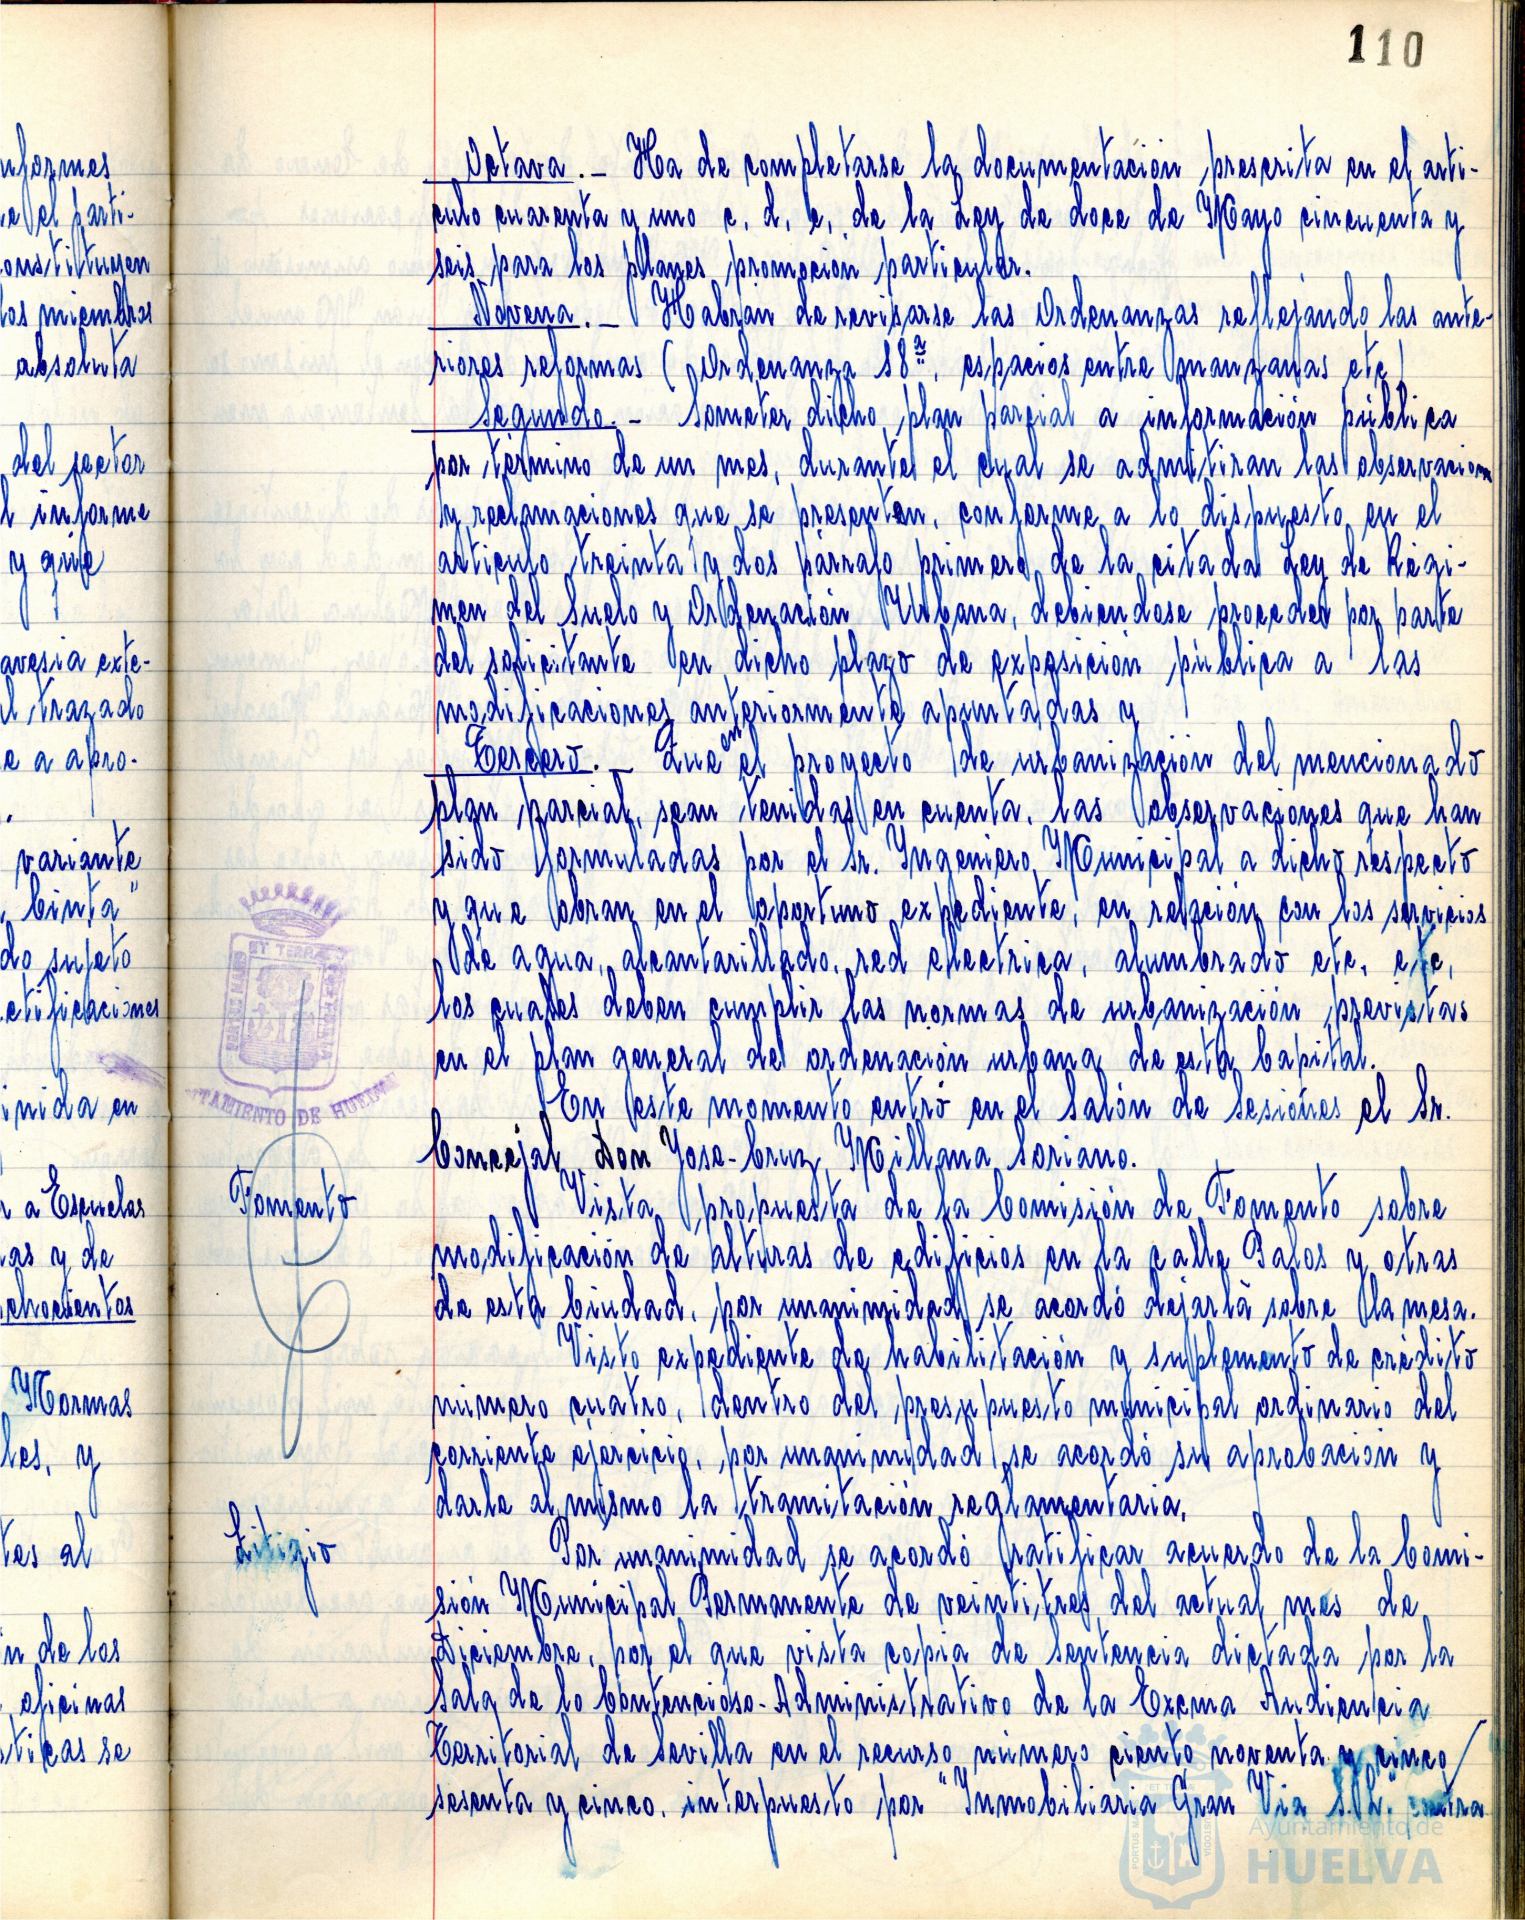 110
nformes
e el parti-
onstituyen
los miembros
absoluta
del sector
l informe
y que
avesia exte-
l trazado
e a apro-
variante
Cinta"
do sujeto
ctificaciones
inida en
r a Escuelas
as y de
chocientos
Normas
les, y
tes al
n de los
oficinas
sticas se
Octava.- Ha de completarse la documentación prescrita en el arti-
culo cuarenta y uno c. d. e. de la Ley de doce de Mayo cincuenta y
seis para los planes promoción particular.
Novena.- Habrán de revisarse las Ordenanzas reflejando las ante-
riores reformas (Ordenanza 18ª, espacios entre manzanas etc)
Segundo.- Someter dicho plan parcial a información pública
por término de un mes, durante el cual se admitiran las observacion
y reclamaciones que se presenten, conforme a lo dispuesto en el
articulo treinta y dos párrafo primero de la citada Ley de Regi-
men del Suelo y Ordenación Urbana, debiendose proceder por parte
del solicitante en dicho plazo de exposición pública a las
modificaciones anteriormente apuntadas y
Tercero.- Que en el proyecto de urbanización del mencionado
plan parcial, sean tenidas en cuenta, las observaciones que han
sido formuladas por el Sr. Ingeniero Municipal a dicho respecto
y que obran en el oportuno expediente, en relación con los servicios
de agua, alcantarillado, red electrica, alumbrado etc. etc,
los cuales deben cumplir las normas de urbanización previstas
en el plan general de ordenación urbana de esta Capital.
En este momento entró en el Salón de Sesiones el Sr.
Concejal Don Jose-Cruz Millana Soriano.
Fomento
Vista propuesta de la Comisión de Fomento sobre
modificación de alturas de edificios en la calle Palos y otras
de esta Ciudad, por unanimidad se acordó dejarla sobre la mesa.
Visto expediente de habilitación y suplemento de crédito
número cuatro, dentro del presupuesto municipal ordinario del
corriente ejercicio, por unanimidad se acordó su aprobación y
darle al mismo la tramitación reglamentaria.
Litigio
Por unanimidad se acordó ratificar acuerdo de la Comi-
sión Municipal Permanente de veintitres del actual mes de
Diciembre, por el que vista copia de sentencia dictada por la
Sala de lo Contencioso-Administrativo de la Excma Audiencia
Territorial de Sevilla en el recurso número ciento noventa y cinco/
sesenta y cinco, interpuesto por "Inmobiliaria Gran Via S.A." contra
TAMIENTO DE HUELVA
Ayuntamiento de
HUELVA